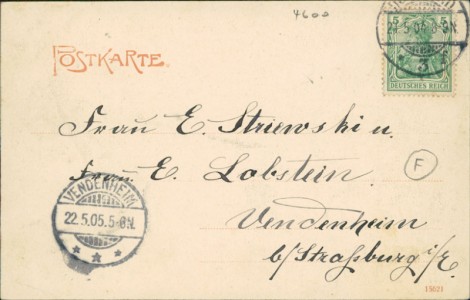 4600
POSTKARTE.
5 5
DEUTSCHES REICH
3
Frau E. Striewski u.
Frau E. Lobstein.
F
VENDENHEIM
22.5.05.5-6N.
* * *
Vendenheim
b/Straßburg i/E.
15021